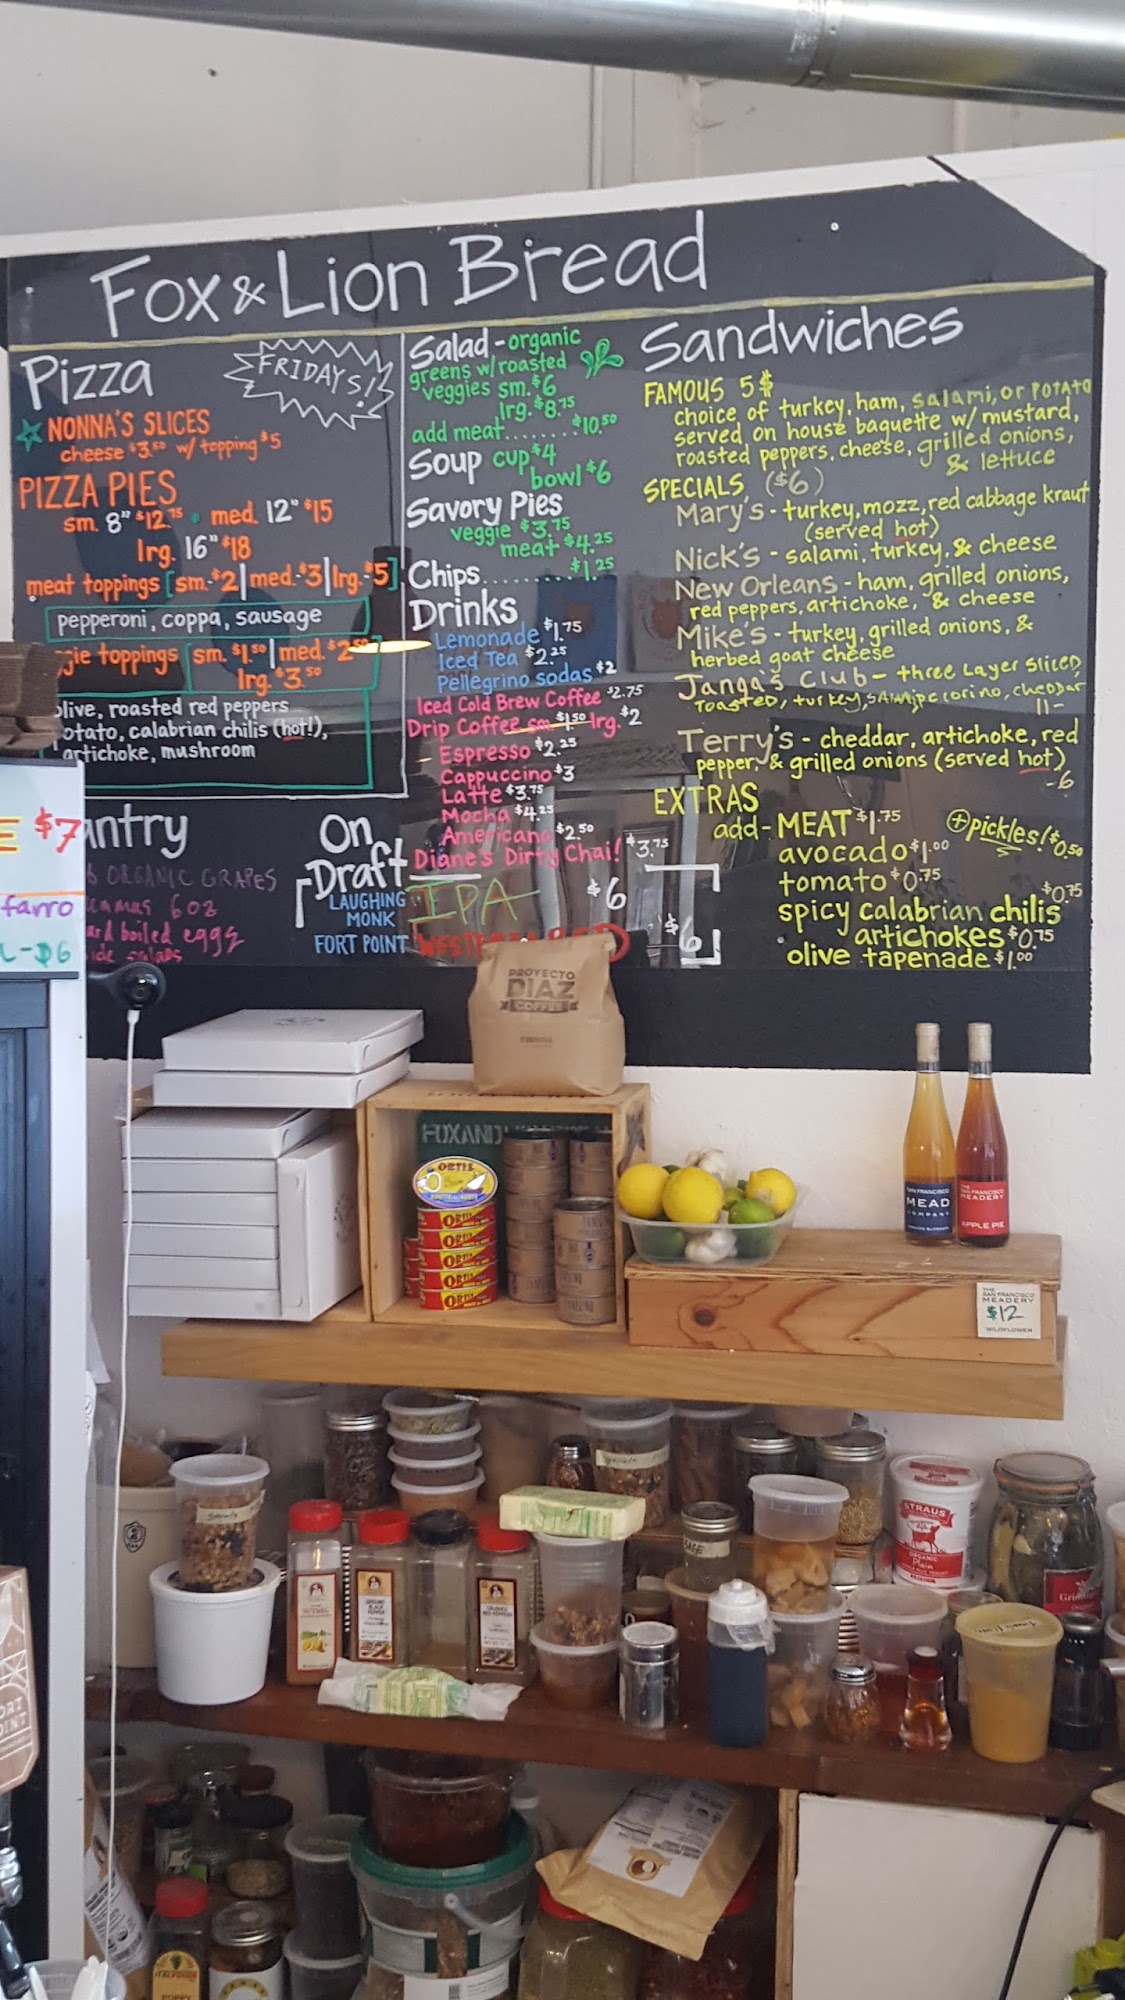 Fox & Lion Bread
Pizza
FRIDAYS!
NONNA'S SLICES
cheese $3.50 w/ topping $5
PIZZA PIES
sm. 8" $12.75 • med. 12" $15
lrg. 16" $18
meat toppings [sm. $2|med. $3|lrg. $5]
pepperoni, coppa, sausage
gie toppings [sm. $1.50|med. $2.50
lrg. $3.50
olive, roasted red peppers
potato, calabrian chilis (hot!),
artichoke, mushroom
Salad - organic
greens w/ roasted
veggies sm. $6
lrg. $8.75
add meat....... $10.50
Soup cup $4
bowl $6
Savory Pies
veggie $3.75
meat $4.25
Chips........ $1.25
Drinks
Lemonade $1.75
Iced Tea $2.25
Pellegrino sodas $2
Iced Cold Brew Coffee $2.75
Drip Coffee sm. $1.50 lrg. $2
Espresso $2.25
Cappuccino $3
Latte $3.75
Mocha $4.25
Americano $2.50
Diane's Dirty Chai! $3.75
Sandwiches
FAMOUS 5$
choice of turkey, ham, salami, or potato
served on house baguette w/ mustard,
roasted peppers, cheese, grilled onions,
& lettuce
SPECIALS ($6)
Mary's - turkey, mozz, red cabbage kraut
(served hot)
Nick's - salami, turkey, & cheese
New Orleans - ham, grilled onions,
red peppers, artichoke, & cheese
Mike's - turkey, grilled onions, &
herbed goat cheese
Janga's Club - three Layer Sliced,
Toasted, turkey, salami, pecorino, cheddar
11-
Terry's - cheddar, artichoke, red
pepper, & grilled onions (served hot)
-6
EXTRAS
add - MEAT $1.75
⊕ pickles! $0.50
avocado $1.00
tomato $0.75
spicy calabrian chilis $0.75
artichokes $0.75
olive tapenade $1.00
antry
ORGANIC GRAPES
6 oz
ard boiled eggs
ide salads
On
Draft
LAUGHING
MONK
IPA $6
FORT POINT
$6
E $7
farro
L-$6
PROYECTO
DIAZ
COFFEE
FOXAND
ORTIZ
ORTIZ
ORTIZ
ORTIZ
ORTIZ
ORTIZ
SAN FRANCISCO
MEAD
COMPANY
THE
SAN FRANCISCO
MEADERY
APPLE PIE
THE
SAN FRANCISCO
MEADERY
$12
WILDFLOWER
STRAUS
ORGANIC
Plain
NUTMEG
GROUND
BLACK
PEPPER
CRUSHED
RED PEPPER
SAGE
ORT
OINT
POPPY